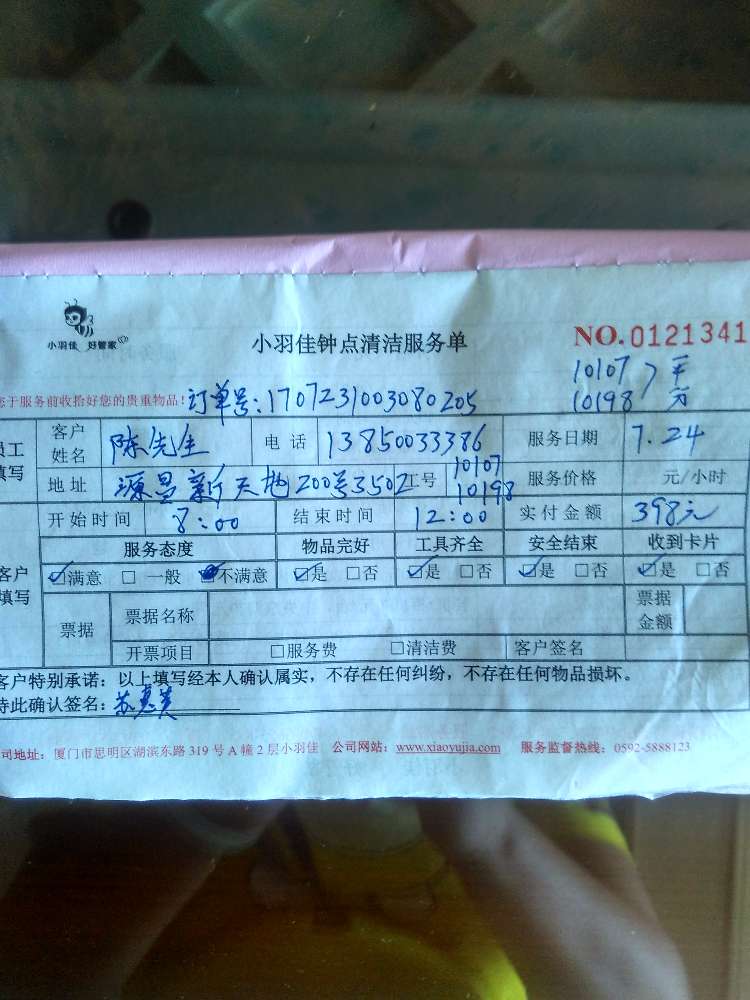 小羽佳 好管家
小羽佳钟点清洁服务单
NO.0121341
10107
10198
于服务前收拾好您的贵重物品！订单号:1707231003080205
员工填写
客户姓名 陈先生 电话 13850033386 服务日期 7.24
地址 源昌新天地200号3502 工号 10107 10198 服务价格 元/小时
开始时间 8:00 结束时间 12:00 实付金额 398元
客户填写
服务态度 物品完好 工具齐全 安全结束 收到卡片
☑满意 □一般 不满意 ☑是 □否 ☑是 □否 ☑是 □否 ☑是 □否
票据 票据名称 票据金额
开票项目 □服务费 □清洁费 客户签名
客户特别承诺：以上填写经本人确认属实，不存在任何纠纷，不存在任何物品损坏。
特此确认签名：苏惠英
司地址：厦门市思明区湖滨东路319号A幢2层小羽佳 公司网站：www.xiaoyujia.com 服务监督热线：0592-5888123